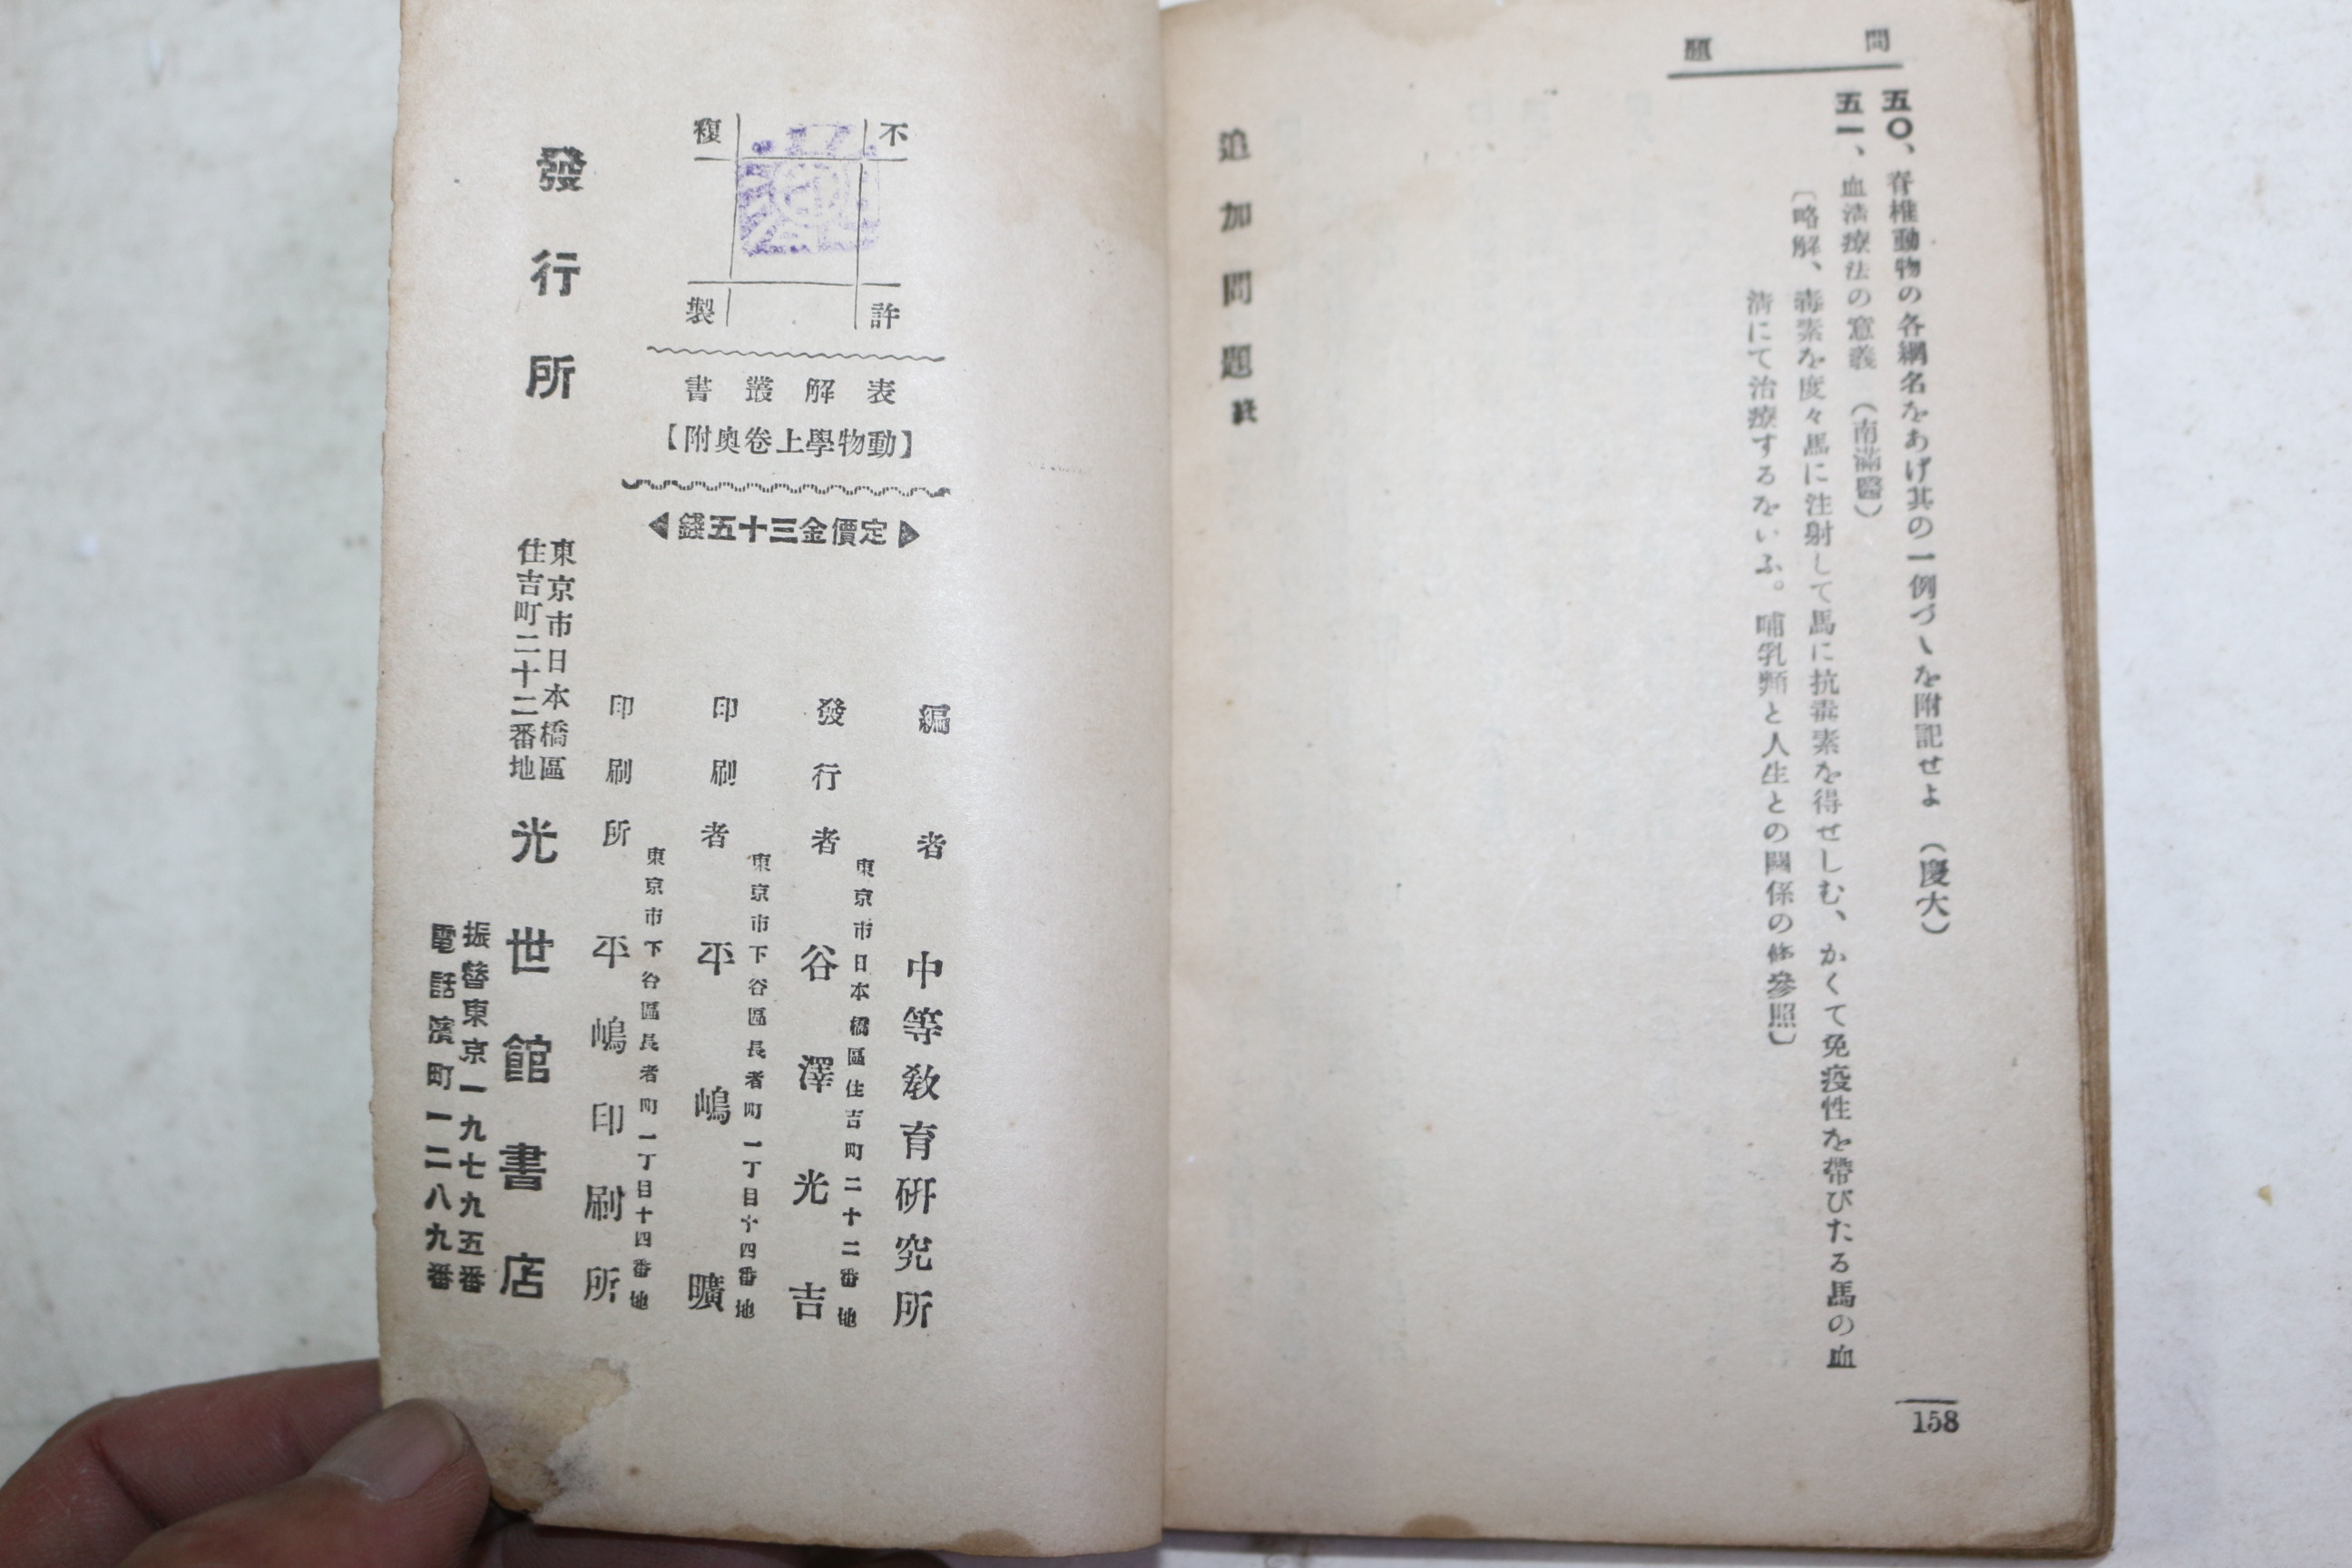 問題
五〇、脊椎動物の各綱名をあげ其の一例づゝを附記せよ (慶大)
五一、血清療法の意義 (南滿醫)
〔略解、毒素を度々馬に注射して馬に抗毒素を得せしむ、かくて免疫性を帶びたる馬の血
淸にて治療するをいふ。哺乳類と人生との關係の條參照〕
追加問題終
158
不許
複製
表解叢書
【動物學上卷奧附】
定價金三十五錢
編者 中等教育硏究所
東京市日本橋區住吉町二十二番地
發行者 谷澤光吉
東京市下谷區長者町一丁目十四番地
印刷者 平嶋曠
東京市下谷區長者町一丁目十四番地
印刷所 平嶋印刷所
發行所
東京市日本橋區
住吉町二十二番地
光世館書店
振替東京一九七九五番
電話濱町一二八九番